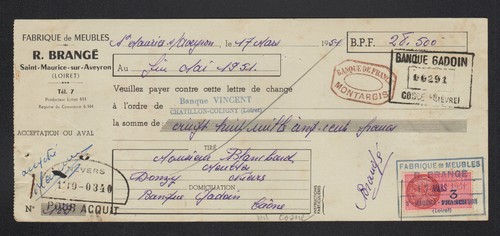 FABRIQUE de MEUBLES
R. BRANGÉ
Saint-Maurice-sur-Aveyron
(LOIRET)
Tél. 7
ACCEPTATION OU AVAL
St Maurice s/Aveyron, le 17 Mars 1951
B.P.F. 28.500
Au Fin Mai 1951.
Veuillez payer contre cette lettre de change
à l'ordre de Banque VINCENT
CHATILLON-COLIGNY (Loiret)
la somme de vingt huit mille cinq cent francs
BANQUE DE FRANCE
MONTARGIS
BANQUE GADOIN
COSNE (NIEVRE)
TIRÉ
Monsieur Blanchard
Meubles
Donzy Nièvre
DOMICILIATION
Banque Gadoin Cosne
accepté
NEVERS
POUR ACQUIT
N°
Brangé
FABRIQUE de MEUBLES
MARS
3
(Loiret)